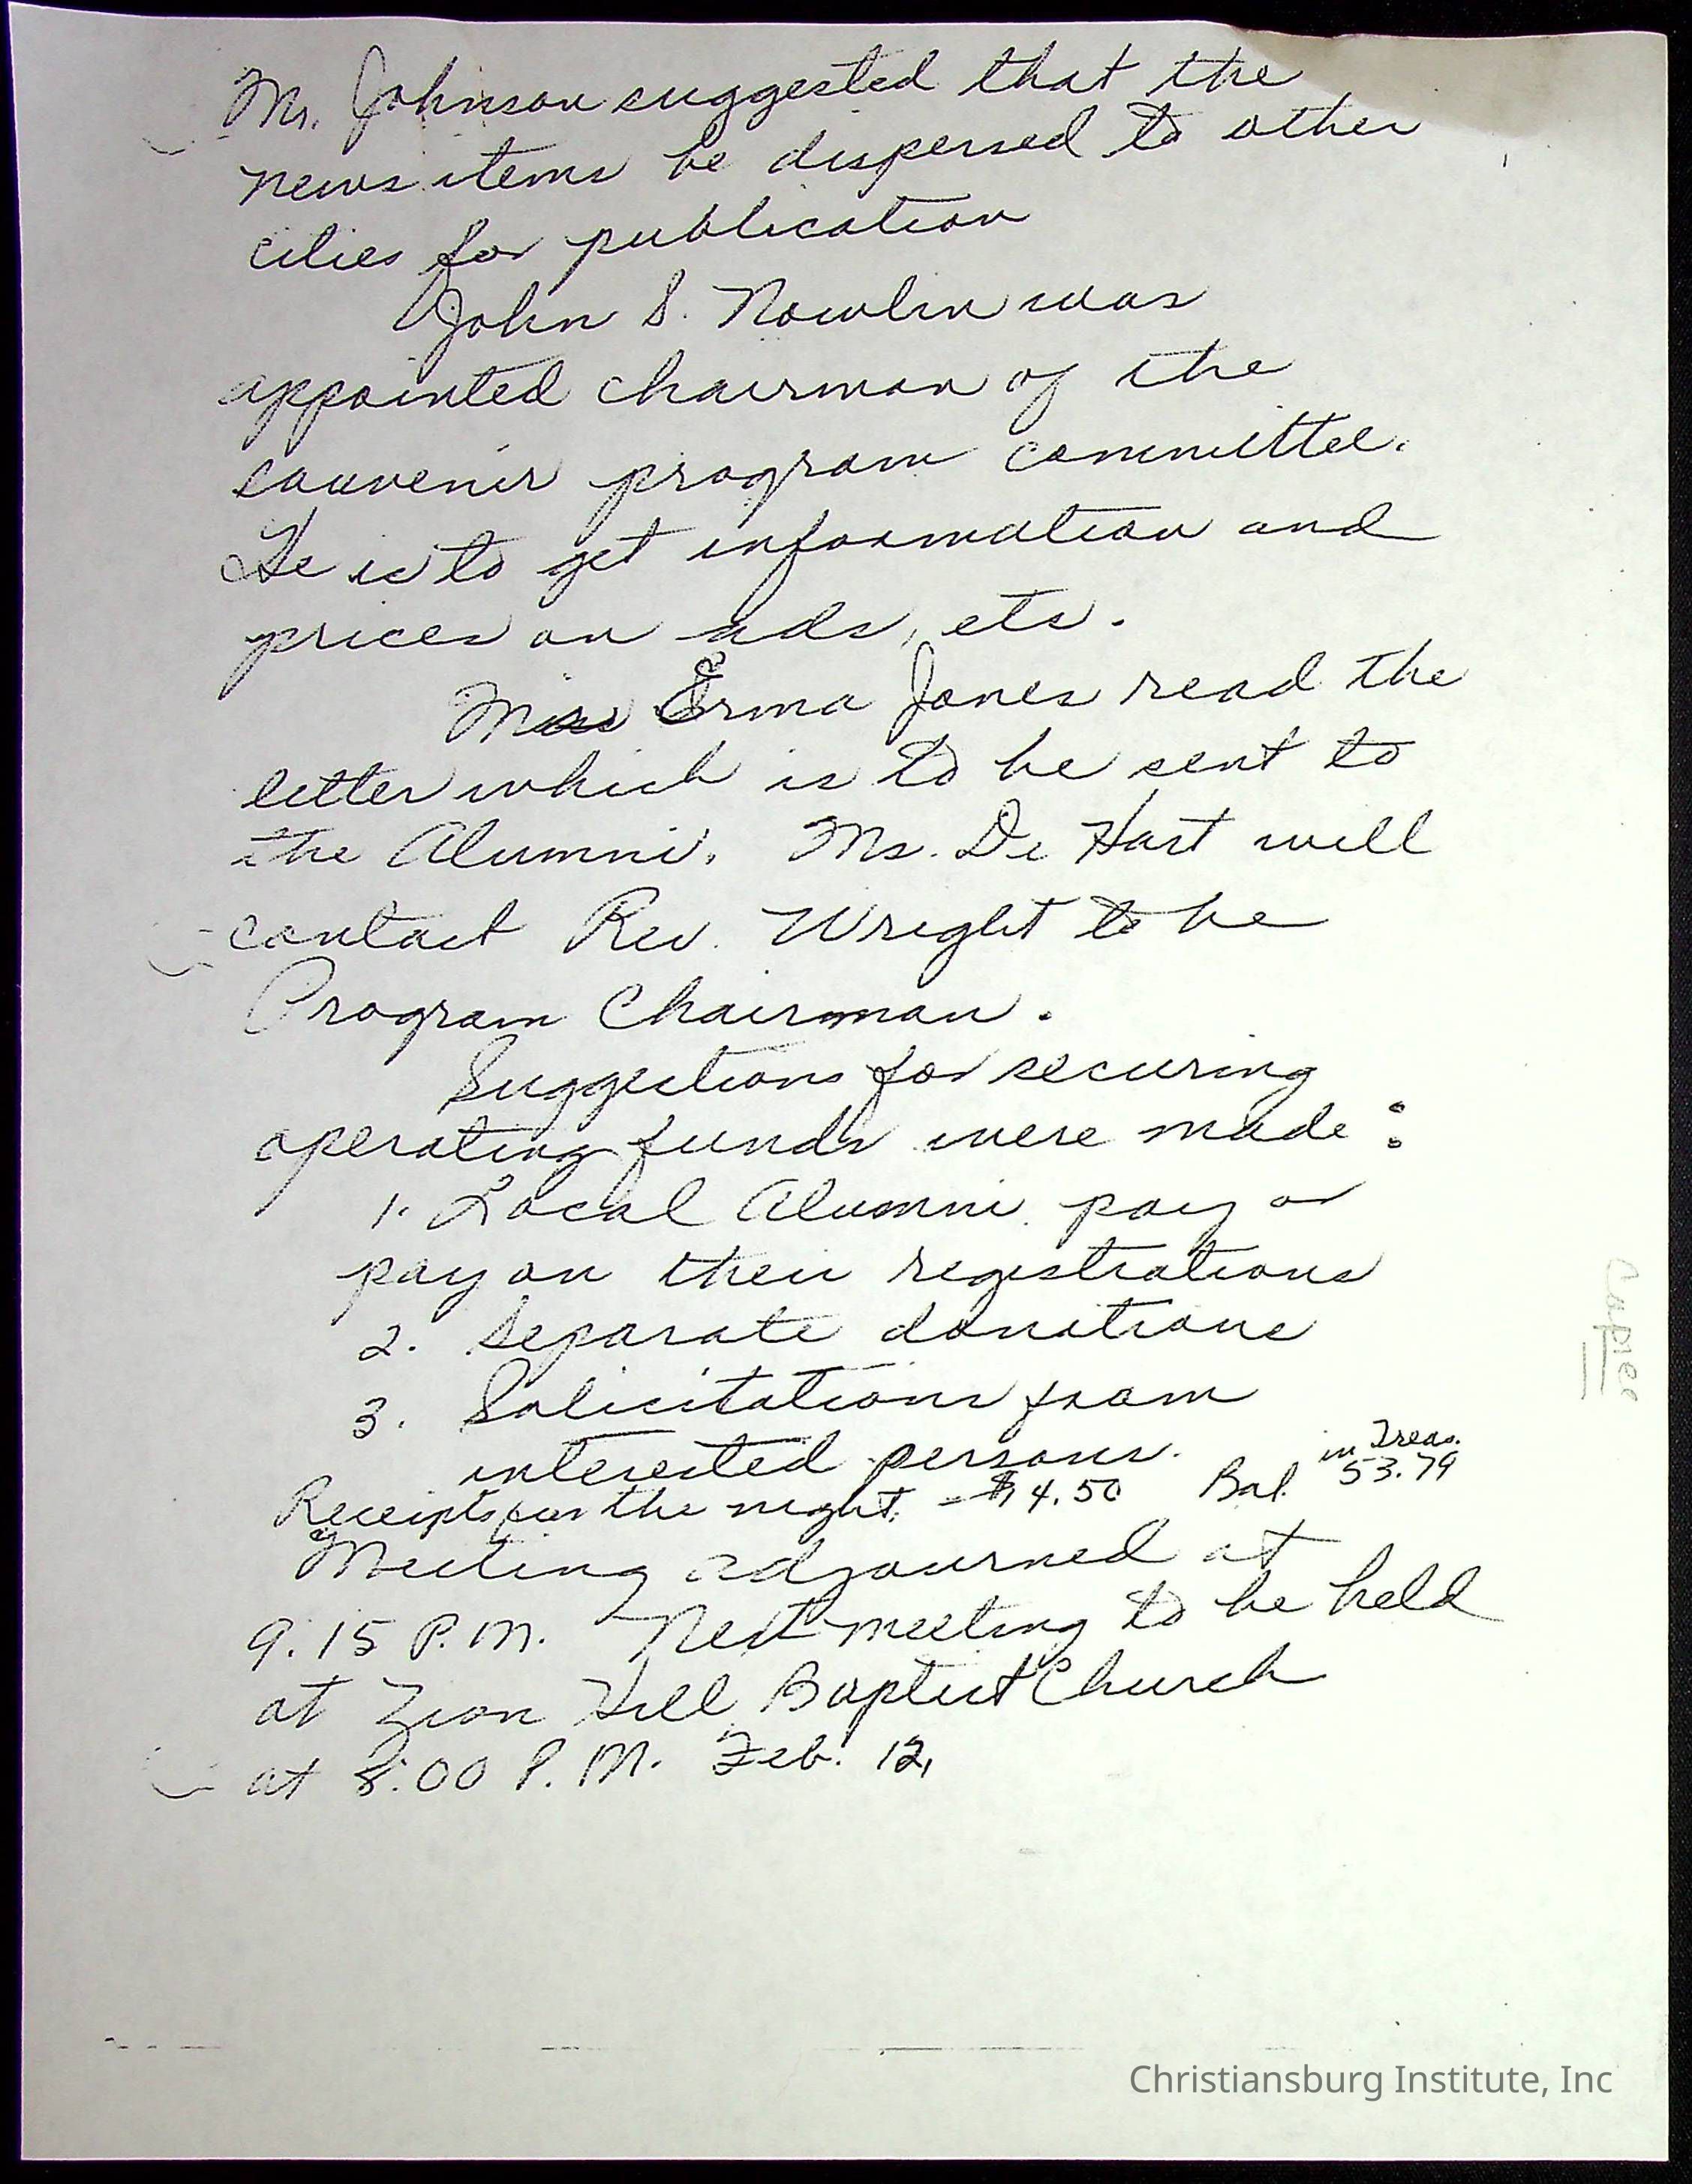 Mr. Johnson suggested that the
news items be dispersed to other
cities for publication
John S. Nowlin was
appointed chairman of the
souvenir program committee.
He is to get information and
prices on ads, etc.
Miss Erma Jones read the
letter which is to be sent to
the Alumni. Ms. De Hart will
contact Rev. Wright to be
Program Chairman.
Suggestions for securing
operating funds were made:
1. Local Alumni pay or
pay on their registrations
2. Separate donations
3. Solicitations from
interested persons.
in Treas.
Receipts for the night. - $4.50 Bal. 53.79
Meeting adjourned at
9:15 P.M. Next meeting to be held
at Zion Hill Baptist Church
at 8:00 P.M. Feb. 12,
Copies
Christiansburg Institute, Inc